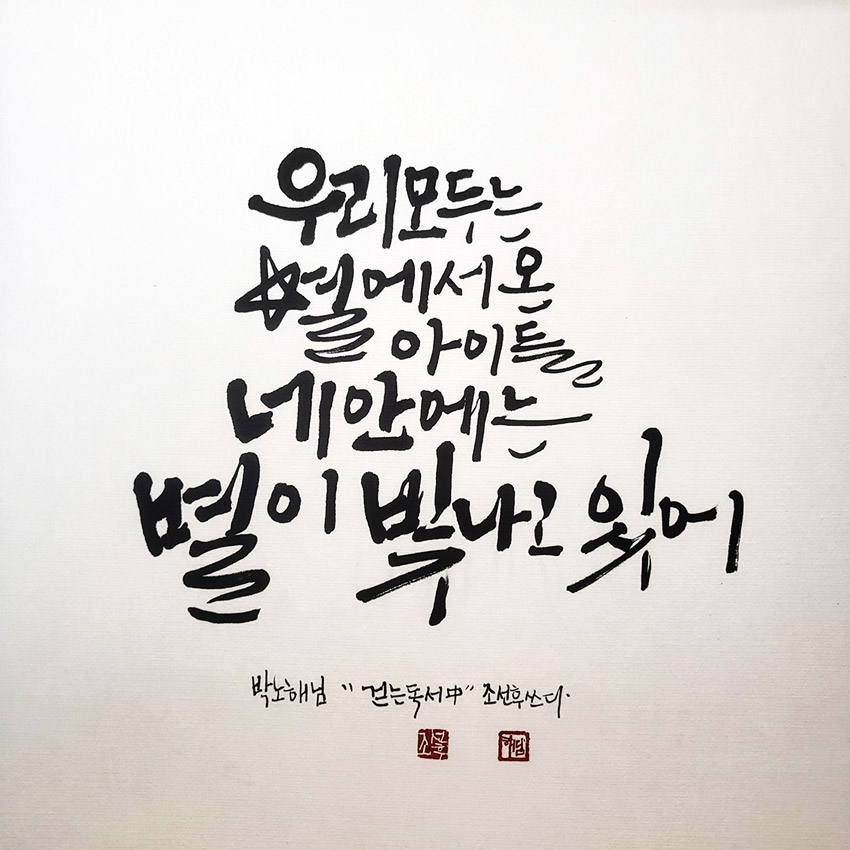 우리 모두는
별에서 온
아이들
네 안에는
별이 빛나고 있어
박노해님 "걷는독서中" 조선후쓰다.